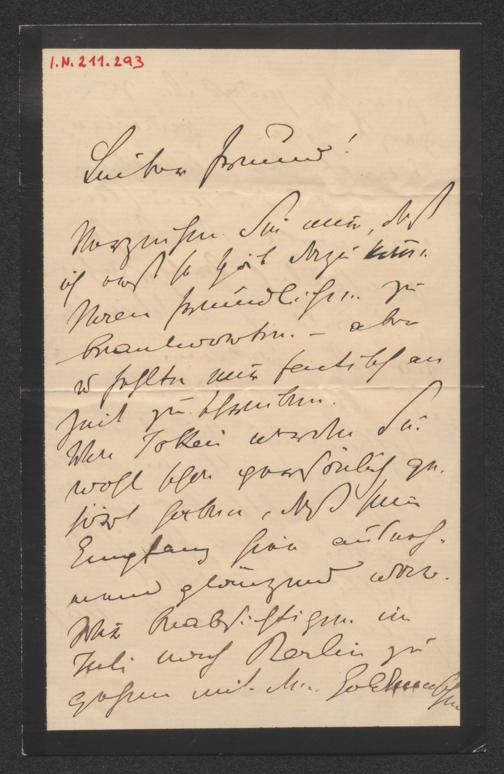 I.N. 211.293
Lieber Freund!
Verzeihen Sie mir, daß
ich erst so spät dazu komme
Ihren freundlichen zu
beantworten – aber
es fehlte mir factisch an
Zeit zu schreiben.
Von Jókai werden Sie
wohl schon persönlich ge-
hört haben, daß sein
Empfang hier ausneh-
mend glänzend war.
Wir beabsichtigen im
Juli nach Berlin zu
gehen mit den